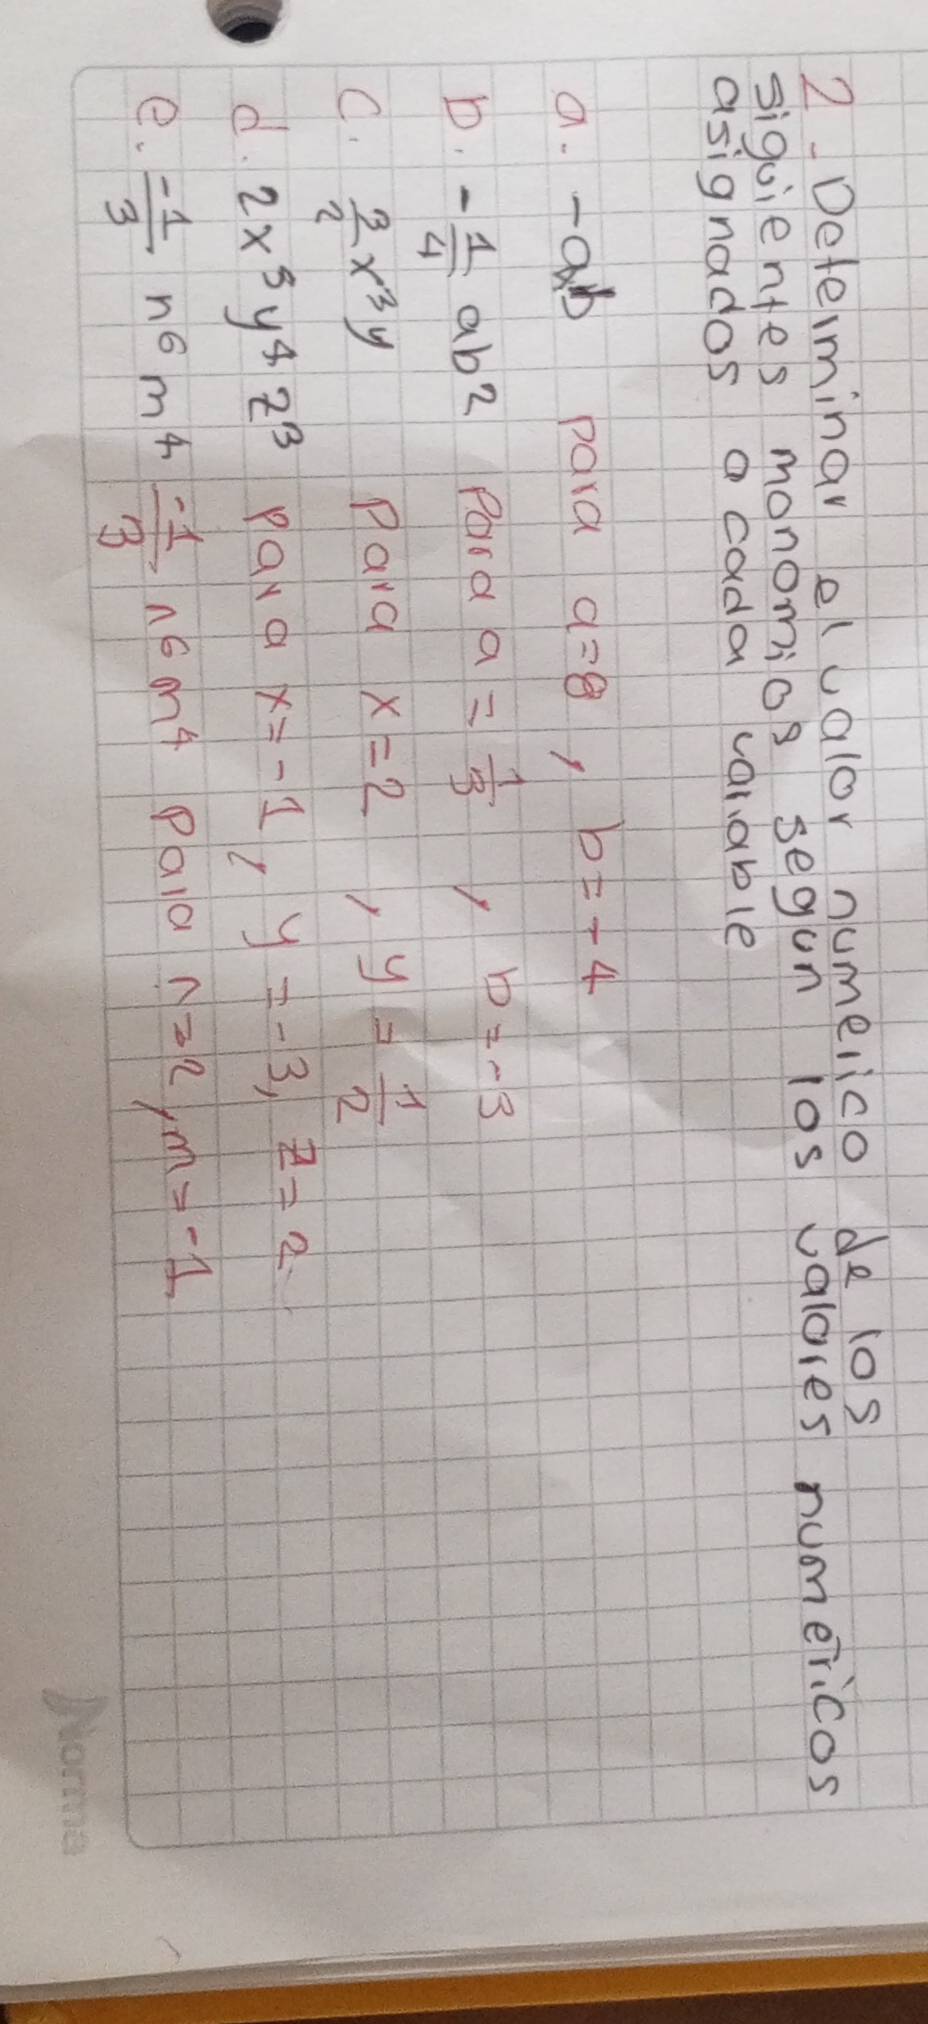 2. Determinar el valor numerico de los
siguientes monomios segun los valores numericos
asignados a cada variable
a. -ab para a=8, b=-4
b. -1/4 ab² Para a=1/3, b=-3
c. 3/2 x³y Para x=2, y=1/2
d. 2x⁵y⁴z³ para x=-1, y=-3, z=2
e. -1/3 n⁶m⁴ -1/3 n⁶m⁴ para n=2, m=-1
Norma